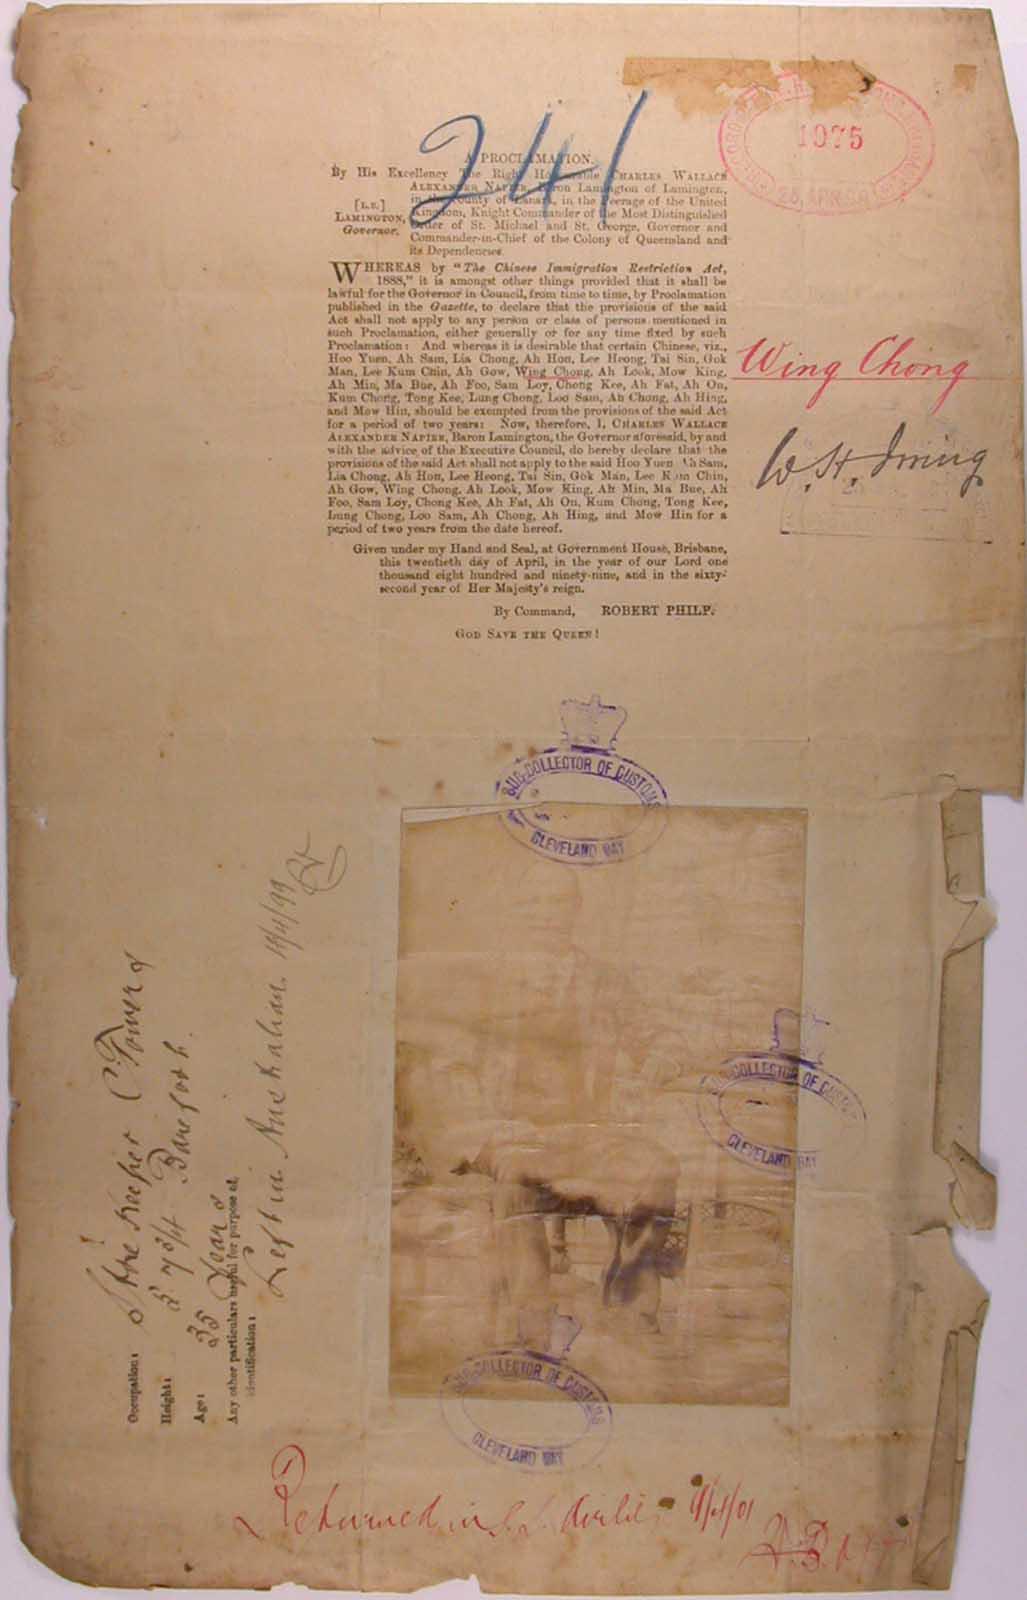 241
1975
25, APR. 99
A PROCLAMATION.
By His Excellency The Right Honourable CHARLES WALLACE
ALEXANDER NAPIER, Baron Lamington of Lamington,
in the County of Lanark, in the Peerage of the United
Kingdom, Knight Commander of the Most Distinguished
Order of St. Michael and St. George, Governor and
Commander-in-Chief of the Colony of Queensland and
its Dependencies.
[L.S.]
LAMINGTON,
Governor.
WHEREAS by "The Chinese Immigration Restriction Act,
1888," it is amongst other things provided that it shall be
lawful for the Governor in Council, from time to time, by Proclamation
published in the Gazette, to declare that the provisions of the said
Act shall not apply to any person or class of persons mentioned in
such Proclamation, either generally or for any time fixed by such
Proclamation: And whereas it is desirable that certain Chinese, viz.,
Hoo Yuen, Ah Sam, Lia Chong, Ah Hon, Lee Heong, Tai Sin, Gok
Man, Lee Kum Chin, Ah Gow, Wing Chong, Ah Look, Mow King,
Ah Min, Ma Bue, Ah Foo, Sam Loy, Chong Kee, Ah Fat, Ah On,
Kum Chong, Tong Kee, Lung Chong, Loo Sam, Ah Chong, Ah Hing,
and Mow Hin, should be exempted from the provisions of the said Act
for a period of two years: Now, therefore, I, CHARLES WALLACE
ALEXANDER NAPIER, Baron Lamington, the Governor aforesaid, by and
with the advice of the Executive Council, do hereby declare that the
provisions of the said Act shall not apply to the said Hoo Yuen Ah Sam,
Lia Chong, Ah Hon, Lee Heong, Tai Sin, Gok Man, Lee Kum Chin,
Ah Gow, Wing Chong, Ah Look, Mow King, Ah Min, Ma Bue, Ah
Foo, Sam Loy, Chong Kee, Ah Fat, Ah On, Kum Chong, Tong Kee,
Lung Chong, Loo Sam, Ah Chong, Ah Hing, and Mow Hin for a
period of two years from the date hereof.
Given under my Hand and Seal, at Government House, Brisbane,
this twentieth day of April, in the year of our Lord one
thousand eight hundred and ninety-nine, and in the sixty-
second year of Her Majesty's reign.
By Command, ROBERT PHILP.
GOD SAVE THE QUEEN!
Wing Chong
W. H. Irving
SUB-COLLECTOR OF CUSTOMS
CLEVELAND BAY
SUB-COLLECTOR OF CUSTOMS
CLEVELAND BAY
SUB-COLLECTOR OF CUSTOMS
CLEVELAND BAY
Occupation: Store Keeper C. Towers
Height: 5' 7 3/4 Barefoot
Age: 35 Years
Any other particulars useful for purpose of
identification:
Left in Australian
Returned in